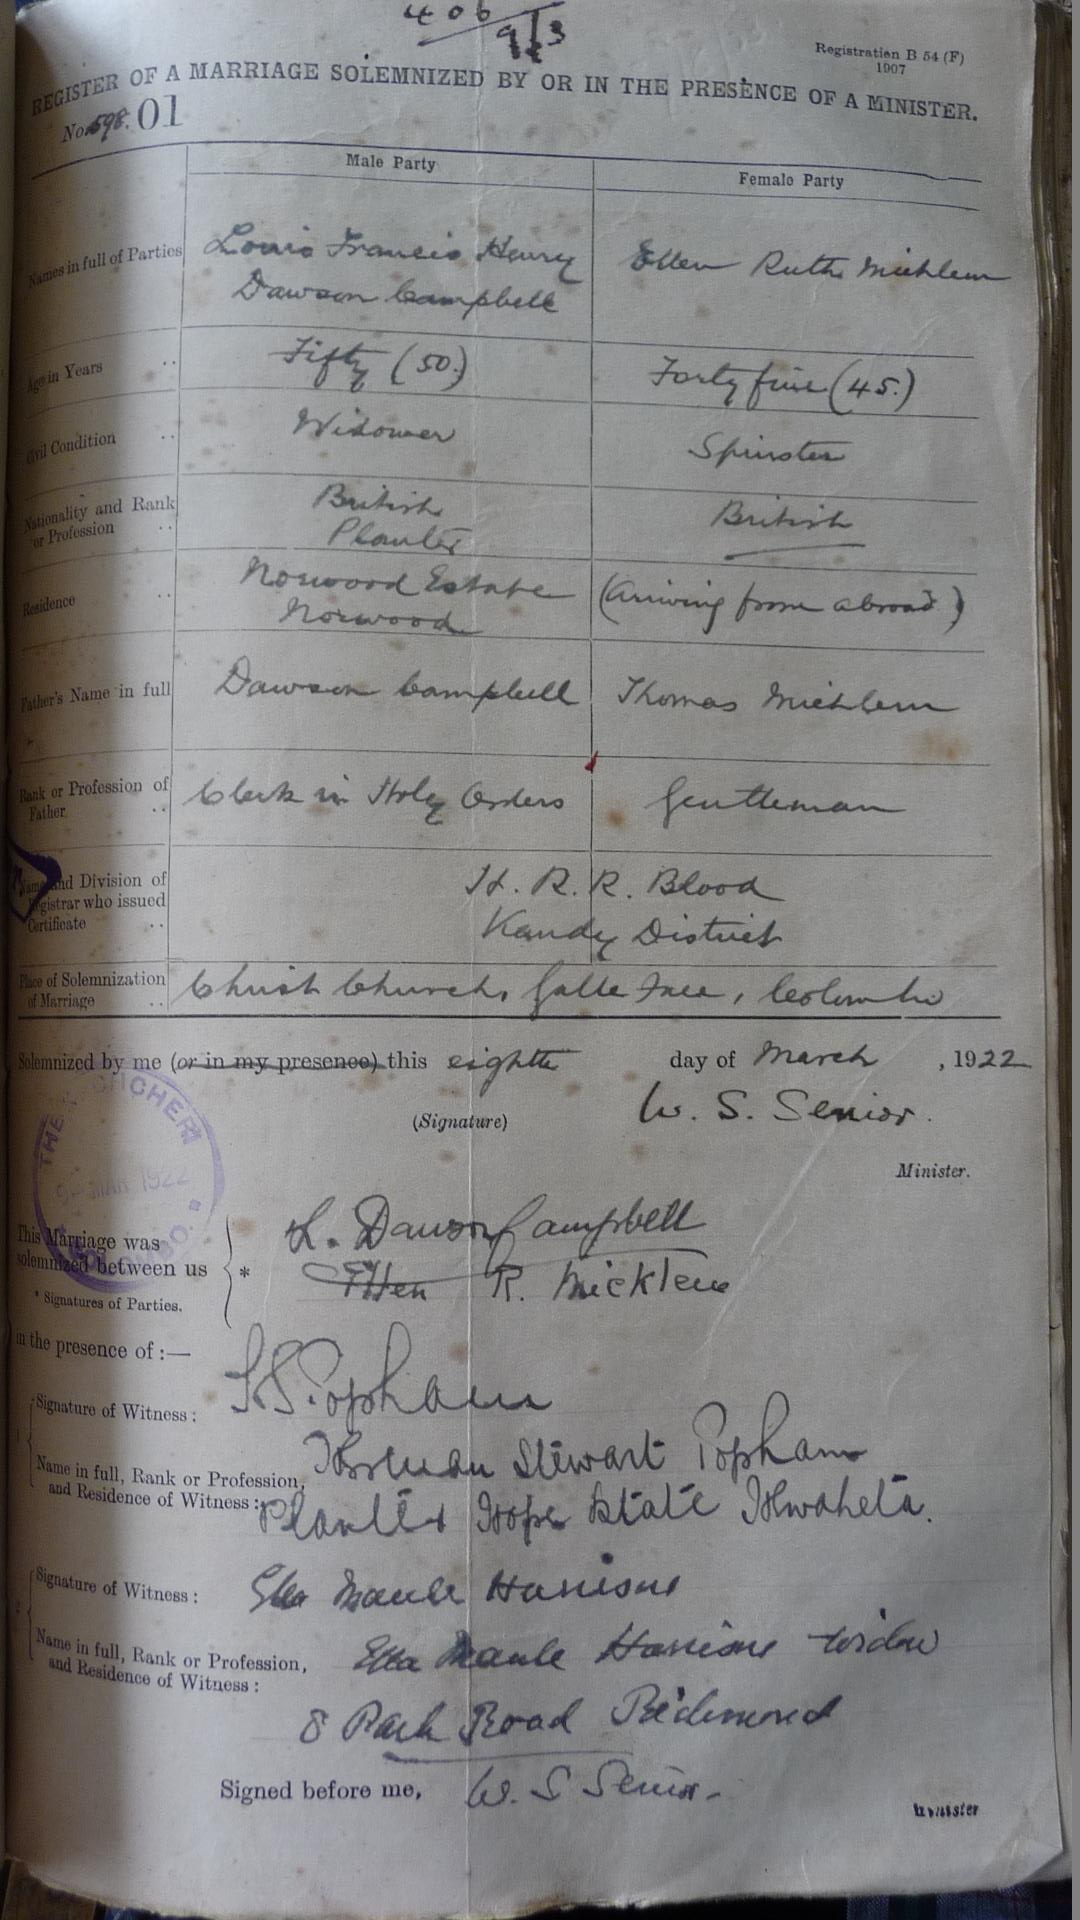 406
9/3
Registration B 54 (F)
1907
REGISTER OF A MARRIAGE SOLEMNIZED BY OR IN THE PRESENCE OF A MINISTER.
No. 598. 01
Male Party
Female Party
Names in full of Parties
Louis Francis Henry
Dawson Campbell
Ellen Ruth Micklem
Age in Years ..
Fifty (50.)
Forty five (45.)
Civil Condition ..
Widower
Spinster
Nationality and Rank
or Profession ..
British
Planter
British
Residence ..
Norwood Estate
Norwood
(Arriving from abroad)
Father's Name in full
Dawson Campbell
Thomas Micklem
Rank or Profession of
Father ..
Clerk in Holy Orders
Gentleman
Name and Division of
Registrar who issued
Certificate ..
H. R. R. Blood
Kandy District
Place of Solemnization
of Marriage ..
Christ Church, Galle Face, Colombo
Solemnized by me (or in my presence) this eighth day of March, 1922
(Signature)
W. S. Senior.
Minister.
THE KACHCHERI
9 - MAR 1922
COLOMBO
This Marriage was
solemnized between us
*
L. Dawson Campbell
Ellen R. Micklem
* Signatures of Parties.
in the presence of :—
Signature of Witness :
Popham
1
Name in full, Rank or Profession,
and Residence of Witness :
Stewart Popham
Planter Hope Estate Hewaheta.
Signature of Witness :
Etta Maule Harrison
2
Name in full, Rank or Profession,
and Residence of Witness :
Etta Maule Harrison Widow
8 Park Road Richmond
Signed before me,
W. S Senior.
Minister